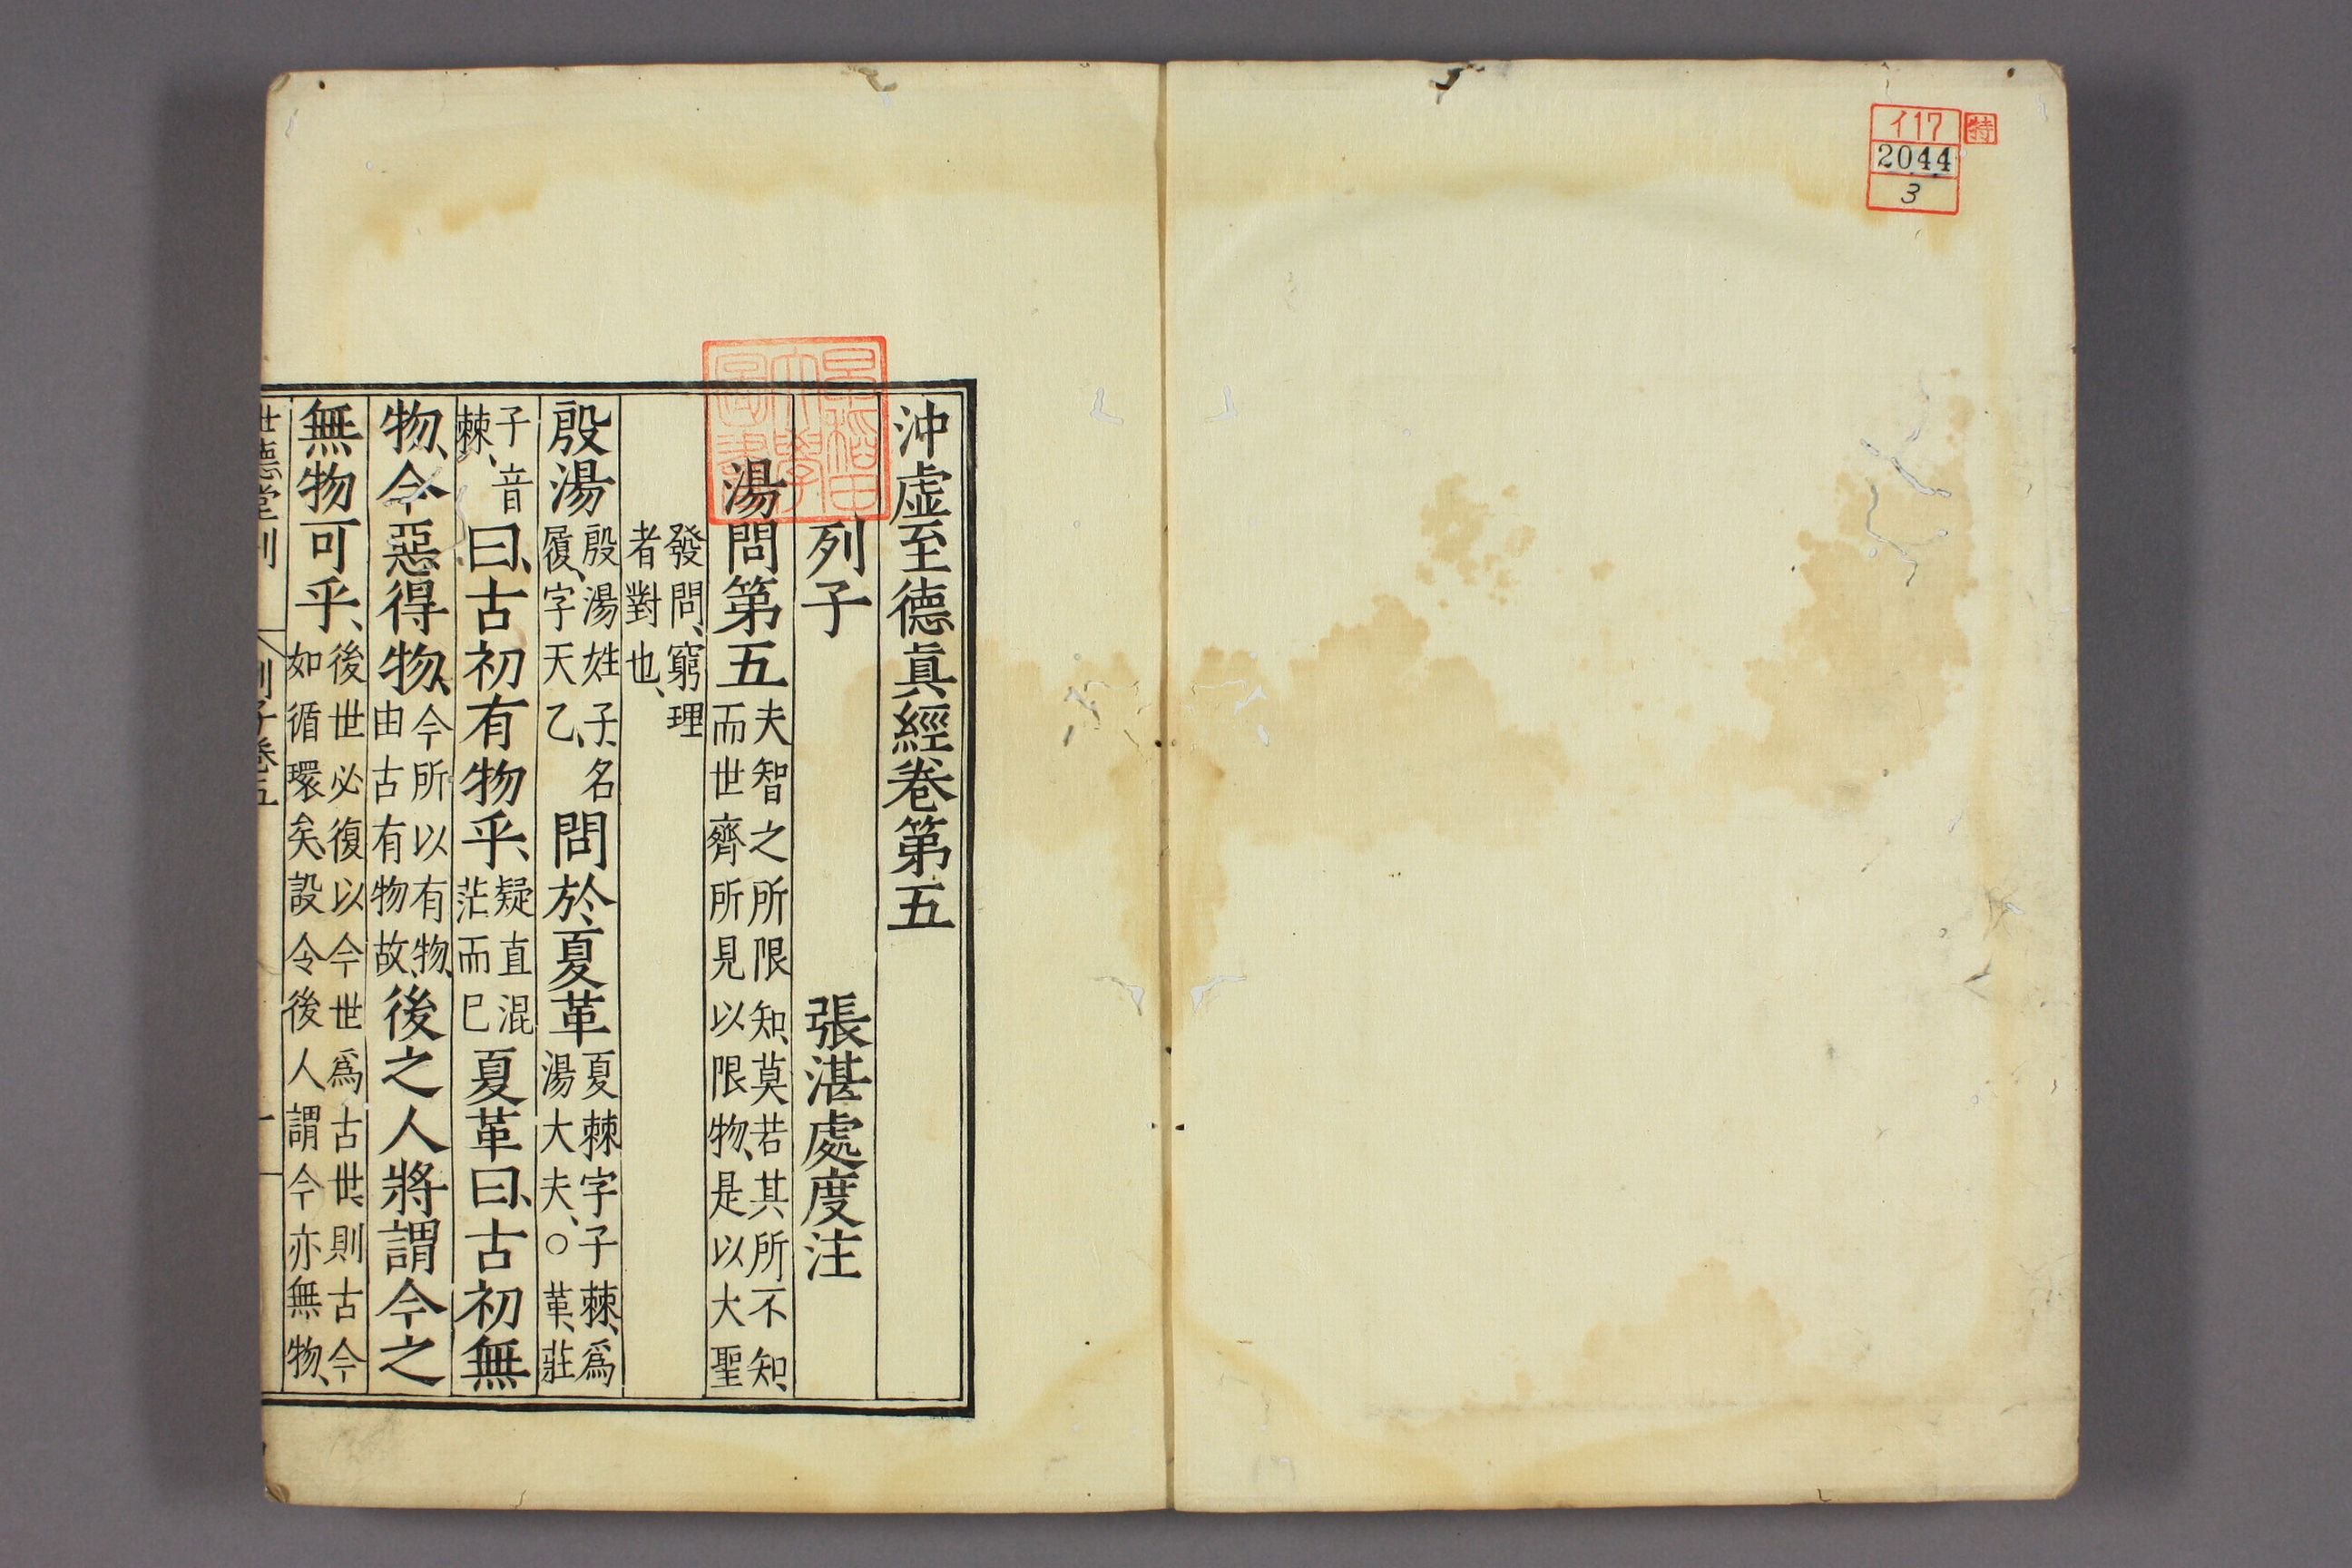 イ17
特
2044
3
沖虚至德眞經卷第五
列子 張湛處度注
湯問第五 夫智之所限知、莫若其所不知、而世齊所見以限物、是以大聖
發問、窮理者對也、
殷湯 殷湯姓子、名履、字天乙、 問於夏革 夏棘字子棘、爲湯大夫、○革、莊
子音棘、 曰、古初有物乎、 疑直混茫而已 夏革曰、古初無
物、今惡得物、 今所以有物、由古有物故、 後之人將謂今之
無物可乎、 後世必復以今世爲古世、則古今如循環矣、設令後人謂今亦無物、
世德堂刊 列子卷五 一
早稲田大學圖書